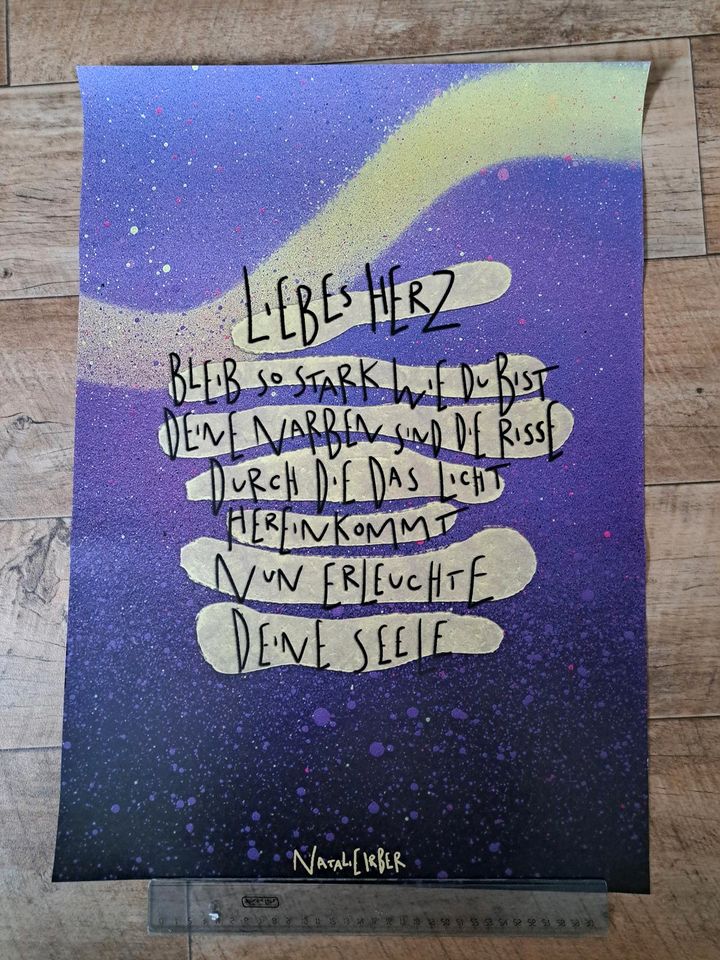 LIEBES HERZ
BLEIB SO STARK WIE DU BIST
DEINE NARBEN SIND DIE RISSE
DURCH DIE DAS LICHT
HEREINKOMMT
NUN ERLEUCHTE
DEINE SEELE
NATALIE IRBER